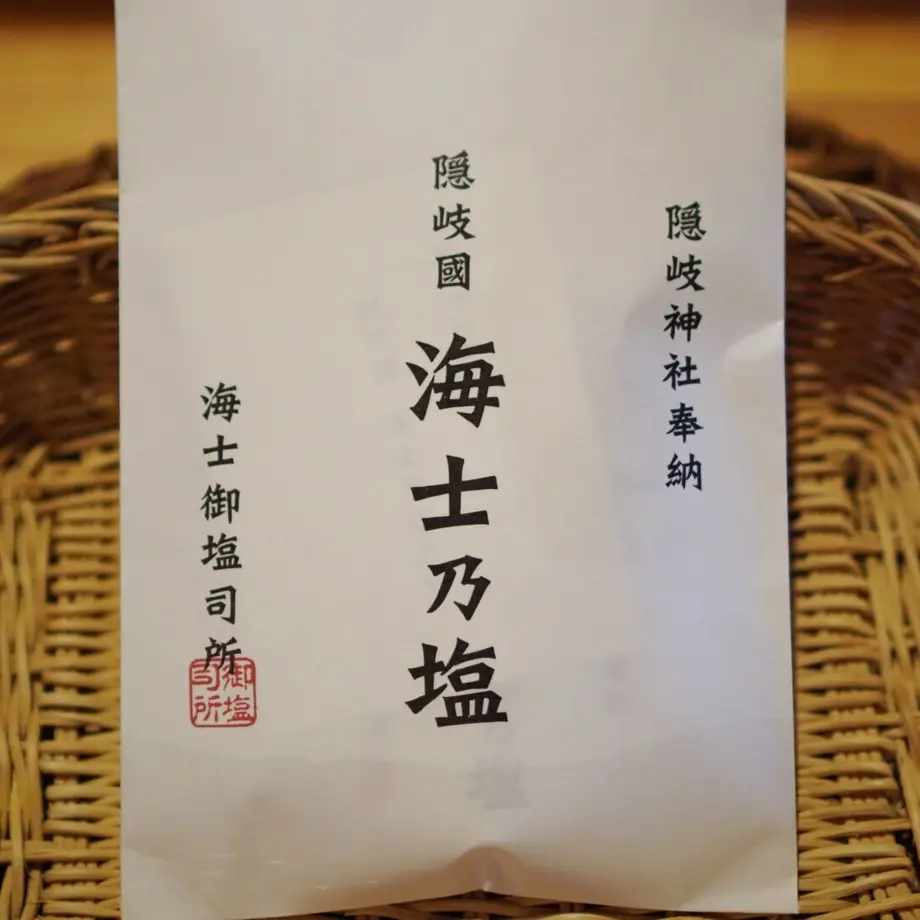 隠岐神社奉納
隠岐國
海士乃塩
海士御塩司所
御塩
司所